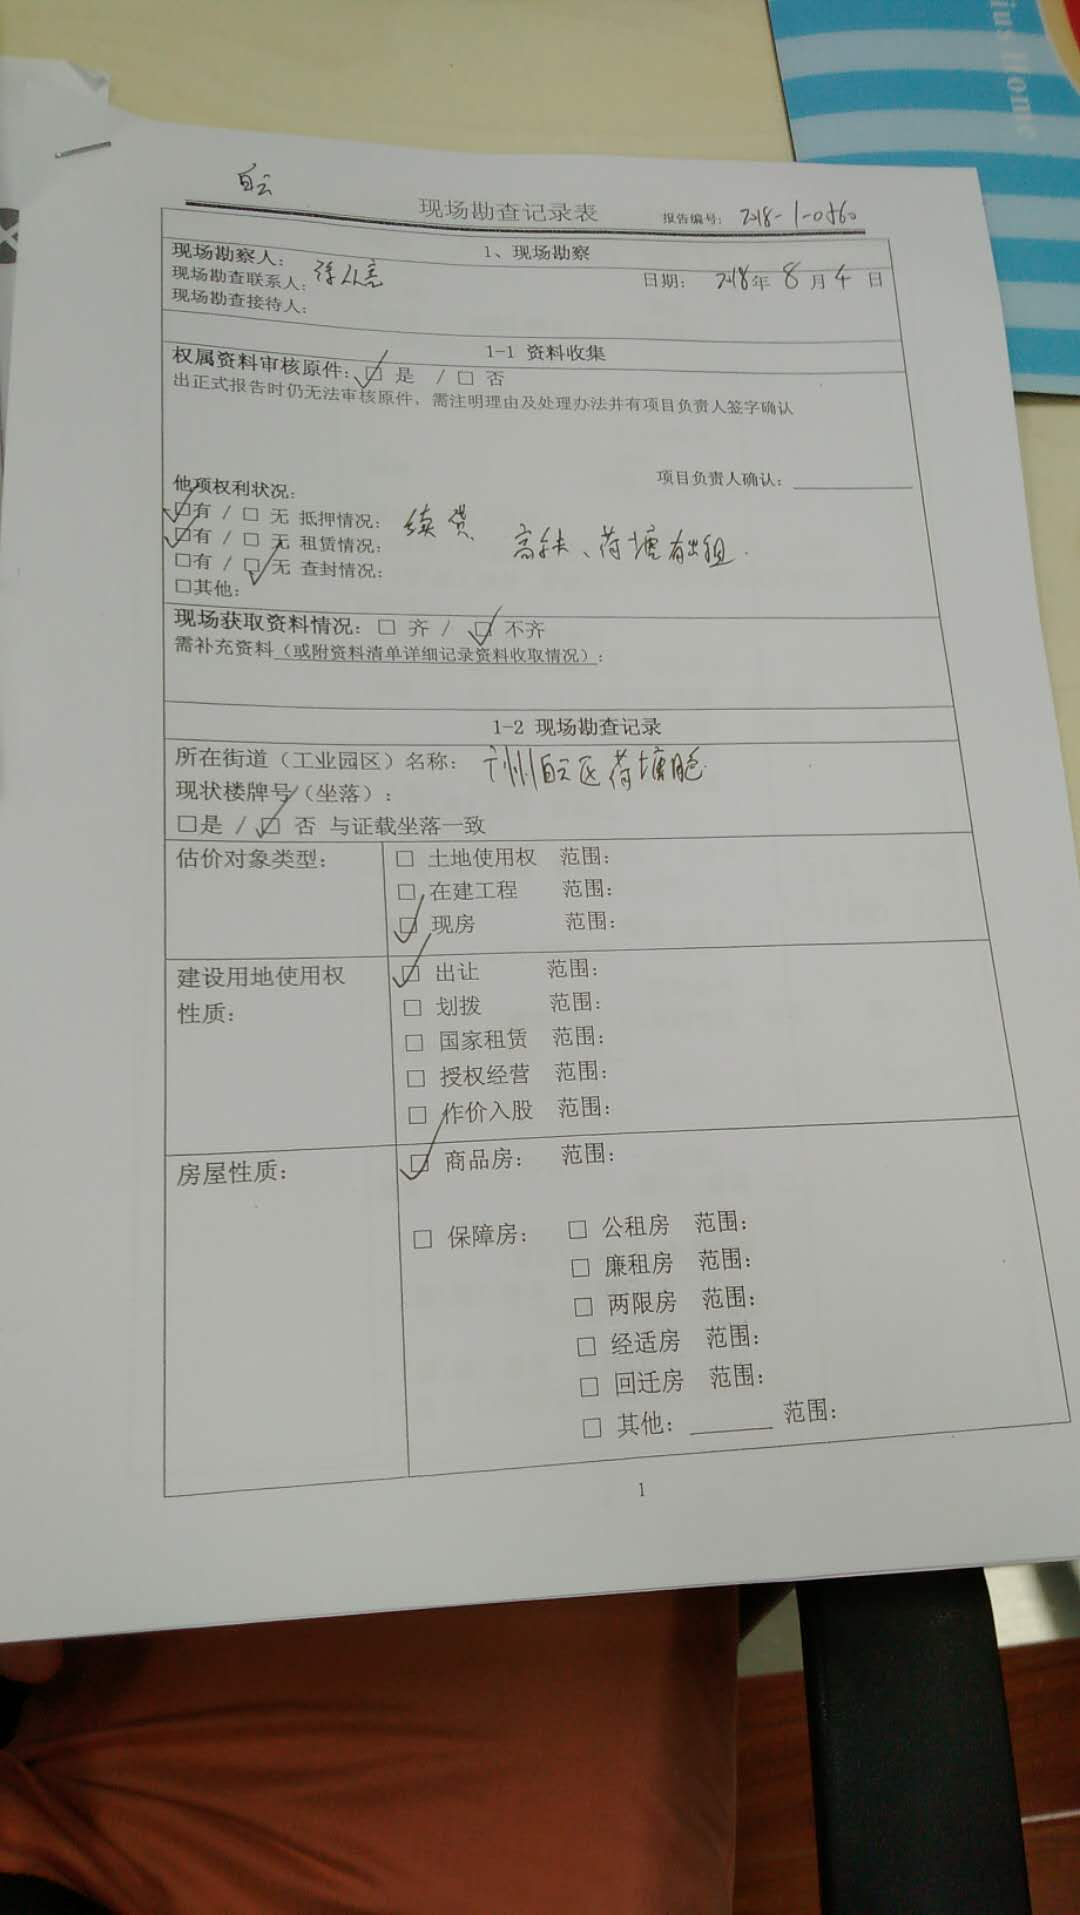 白云
现场勘查记录表 报告编号： 2018-1-0560
1、现场勘察
现场勘察人：
现场勘查联系人： 日期： 2018年 8 月 4 日
现场勘查接待人：
1-1 资料收集
权属资料审核原件：☑ 是 / □ 否
出正式报告时仍无法审核原件，需注明理由及处理办法并有项目负责人签字确认
项目负责人确认：________
他项权利状况：
☑有 / □ 无 抵押情况： 续贷
☑有 / □ 无 租赁情况： 荷塘有出租.
□有 / ☑ 无 查封情况：
□其他：
现场获取资料情况：□ 齐 / ☑ 不齐
需补充资料（或附资料清单详细记录资料收取情况）：
1-2 现场勘查记录
所在街道（工业园区）名称： 广州白云区荷塘
现状楼牌号（坐落）：
□是 / ☑ 否 与证载坐落一致
估价对象类型： □ 土地使用权 范围：
□ 在建工程 范围：
☑ 现房 范围：
建设用地使用权 ☑ 出让 范围：
性质： □ 划拨 范围：
□ 国家租赁 范围：
□ 授权经营 范围：
□ 作价入股 范围：
房屋性质： ☑ 商品房： 范围：
□ 保障房： □ 公租房 范围：
□ 廉租房 范围：
□ 两限房 范围：
□ 经适房 范围：
□ 回迁房 范围：
□ 其他：______ 范围：
1
ius Home